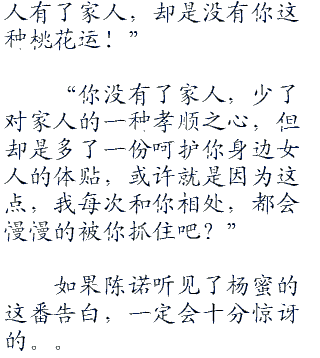 人有了家人，却是没有你这
种桃花运！”
“你没有了家人，少了
对家人的一种孝顺之心，但
却是多了一份呵护你身边女
人的体贴，或许就是因为这
点，我每次和你相处，都会
慢慢的被你抓住吧？”
如果陈诺听见了杨蜜的
这番告白，一定会十分惊讶
的。。